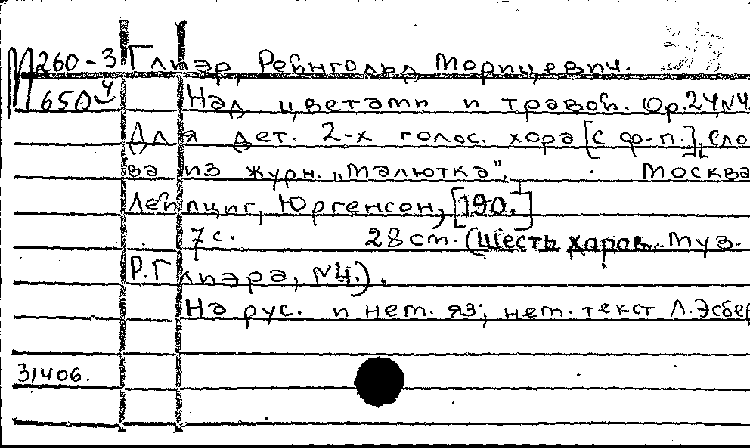 М 260-3 Глиэр, Рейнгольд Морицевич.
650 ч Над цветами и травой. Ор.24, №4
Для дет. 2-х голос. хора [с ф-п.], Сло
ва из журн. "Малютка". Москва
Лейпциг, Юргенсон, [190.]
7 с. 28 см. (Шесть хоров. Муз.
Р. Глиэра, №4.).
На рус. и нем. яз; нем. текст Л. Эсбер
31406.